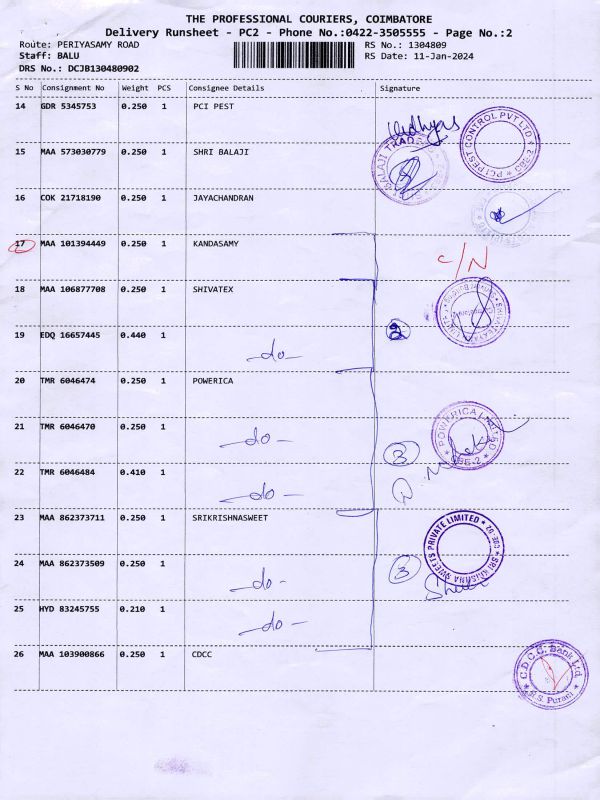 THE PROFESSIONAL COURIERS, COIMBATORE
Delivery Runsheet - PC2 - Phone No.:0422-3505555 - Page No.:2
Route: PERIYASAMY ROAD RS No.: 1304809
Staff: BALU RS Date: 11-Jan-2024
DRS No.: DCJB130480902
S No Consignment No Weight PCS Consignee Details Signature
14 GDR 5345753 0.250 1 PCI PEST
PCI PEST CONTROL PVT LTD * CBE-2 *
15 MAA 573030779 0.250 1 SHRI BALAJI
BALAJI TRAD
16 COK 21718190 0.250 1 JAYACHANDRAN
17 MAA 101394449 0.250 1 KANDASAMY
C/N
18 MAA 106877708 0.250 1 SHIVATEX
19 EDQ 16657445 0.440 1
2
-do-
20 TMR 6046474 0.250 1 POWERICA
POWERICA LIMITED * CBE-2 *
21 TMR 6046470 0.250 1
-do-
3
22 TMR 6046484 0.410 1
-do-
23 MAA 862373711 0.250 1 SRIKRISHNASWEET
SRI KRISHNA SWEETS PRIVATE LIMITED * CBE-02 *
24 MAA 862373509 0.250 1
3
-do-
25 HYD 83245755 0.210 1
-do-
26 MAA 103900866 0.250 1 CDCC
C.D.C.C. Bank Ltd.
R.S. Puram